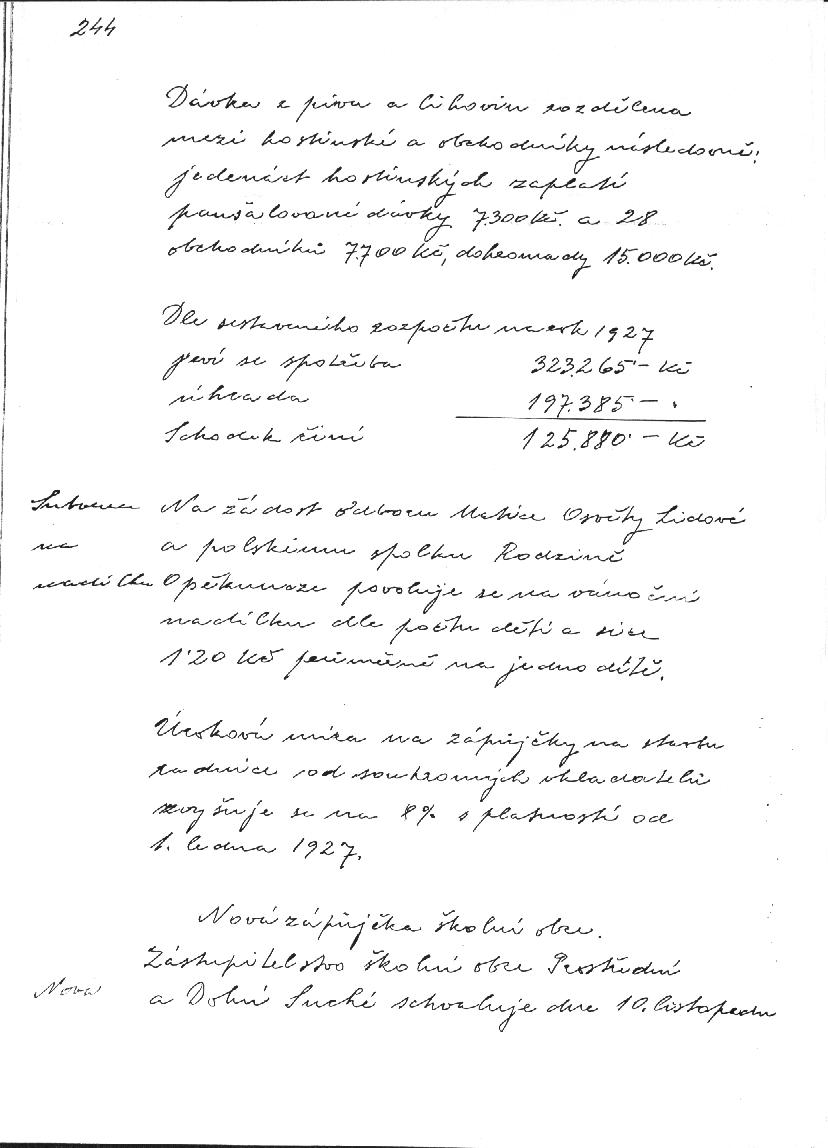 244
Dávka z piva a lihovin rozdělena
mezi hostinské a obchodníky následovně:
jedenáct hostinských zaplatí
paušalované dávky 7.300 Kč. a 28
obchodníků 7.700 Kč, dohromady 15.000 Kč.
Dle sestaveného rozpočtu na rok 1927
jeví se spotřeba 323.265·– Kč
úhrada 197.385 – "
Schodek činí 125.880·– Kč
Subvence Na žádost odboru Matice Osvěty Lidové
na a polskému spolku Rodzině
nadílku Opěkuncze povoluje se na vánoční
nadílku dle počtu dětí a sice
1·20 Kč průměrně na jedno dítě.
Úroková míra na zápůjčky na stavbu
radnice od soukromých vkladatelů
zvyšuje se na 8% s platností od
1. ledna 1927.
Nová zápůjčka školní obce.
Zástupitelstvo školní obce Prostřední
Nová a Dolní Suché schvaluje dne 10. listopadu